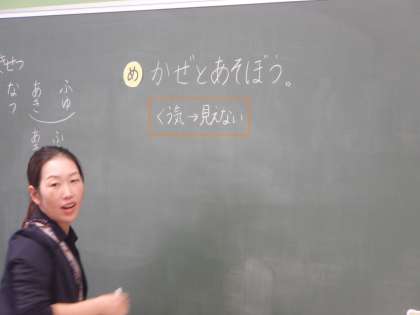 め かぜとあそぼう。
くう気→見えない
きせつ
なつ
あき
ふゆ
あ
ふ